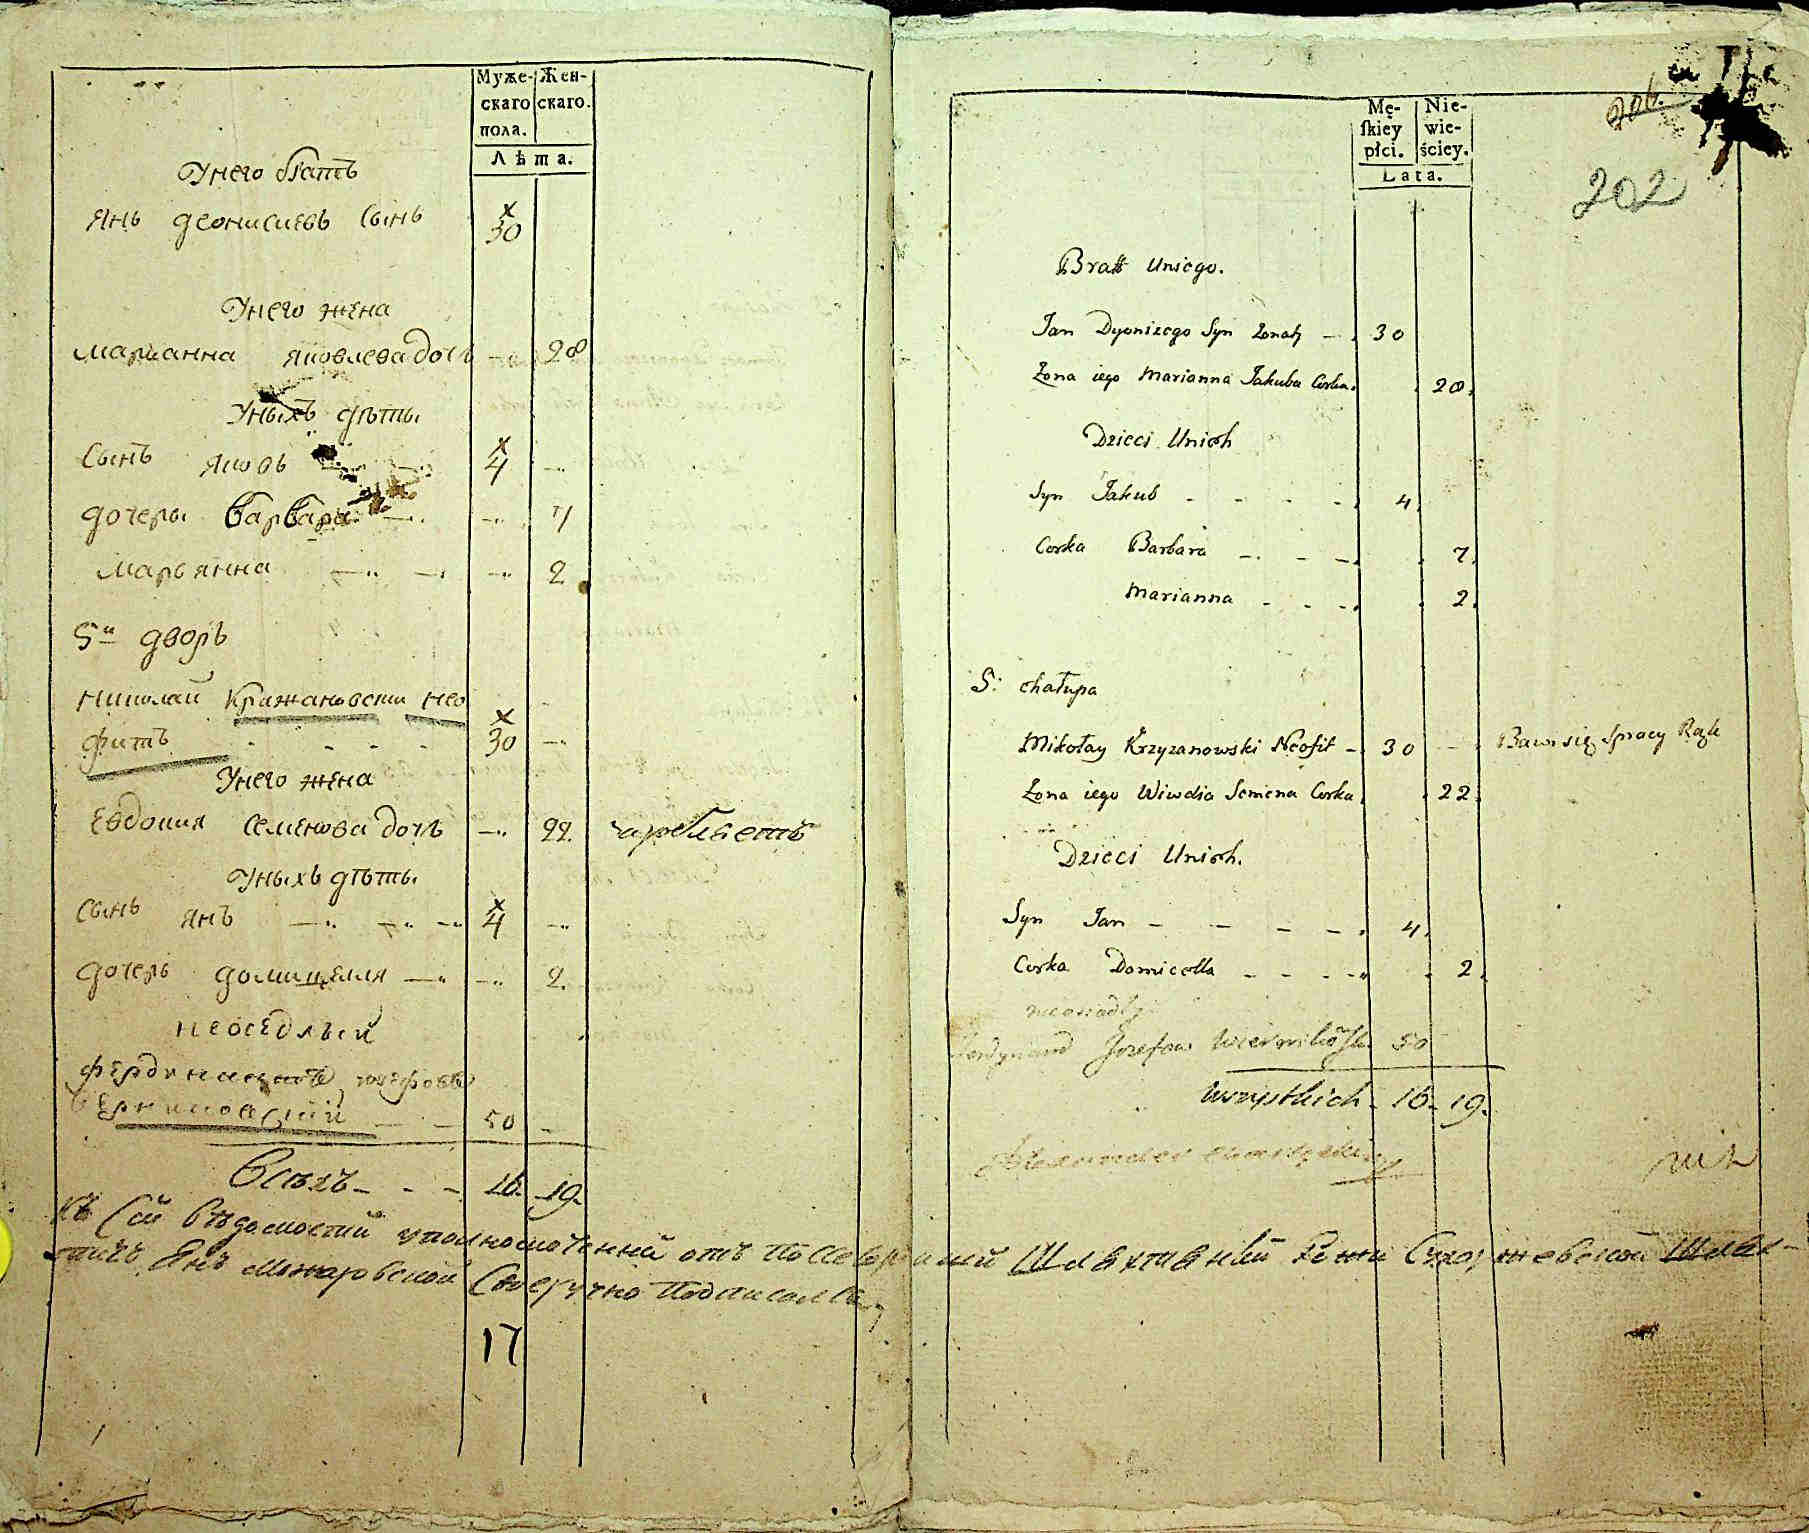 Муже- Жен-
скаго скаго.
пола.
Лѣта.
Унего братъ
Янъ Деонисиевъ Сынъ 30
Унего жена
Марианна Яковлева дочь 28
Уныхъ дѣты
Сынъ Яковъ 4
дочеры Варвара 7
Марьянна 2
5й дворъ
Николай Кржановски нео
фитъ 30
Унего жена
Евдокия Семенова дочь 22
Уныхъ дѣты
Сынъ Янъ 4
дочерь домицелля 2
неоседлый
Фердинандъ
50
Всѣхъ 16 19
Къ Сей Вѣдомостий уполномоченний отъ Шляхтичъ Янъ Своеручно Подписался
17
Mę- Nie-
ſkiey wie-
płci. ściey.
Lata.
206.
202
Bratt Uniego.
Jan Dyonizego Syn Żonaty 30
Żona iego Marianna Jakuba Corka 28
Dzieci Unich
Syn Jakub 4
Corka Barbara 7
Marianna 2
5: chałupa
Mikołay Krzyzanowski Neofit 30 Bawi się Spracy Rąk
Żona iego Wiwdia Semena Corka 22
Dzieci Unich.
Syn Jan 4
Corka Domicella 2
nieosiadły
Ferdynand Jozefow 50
Wszystkich 16 19